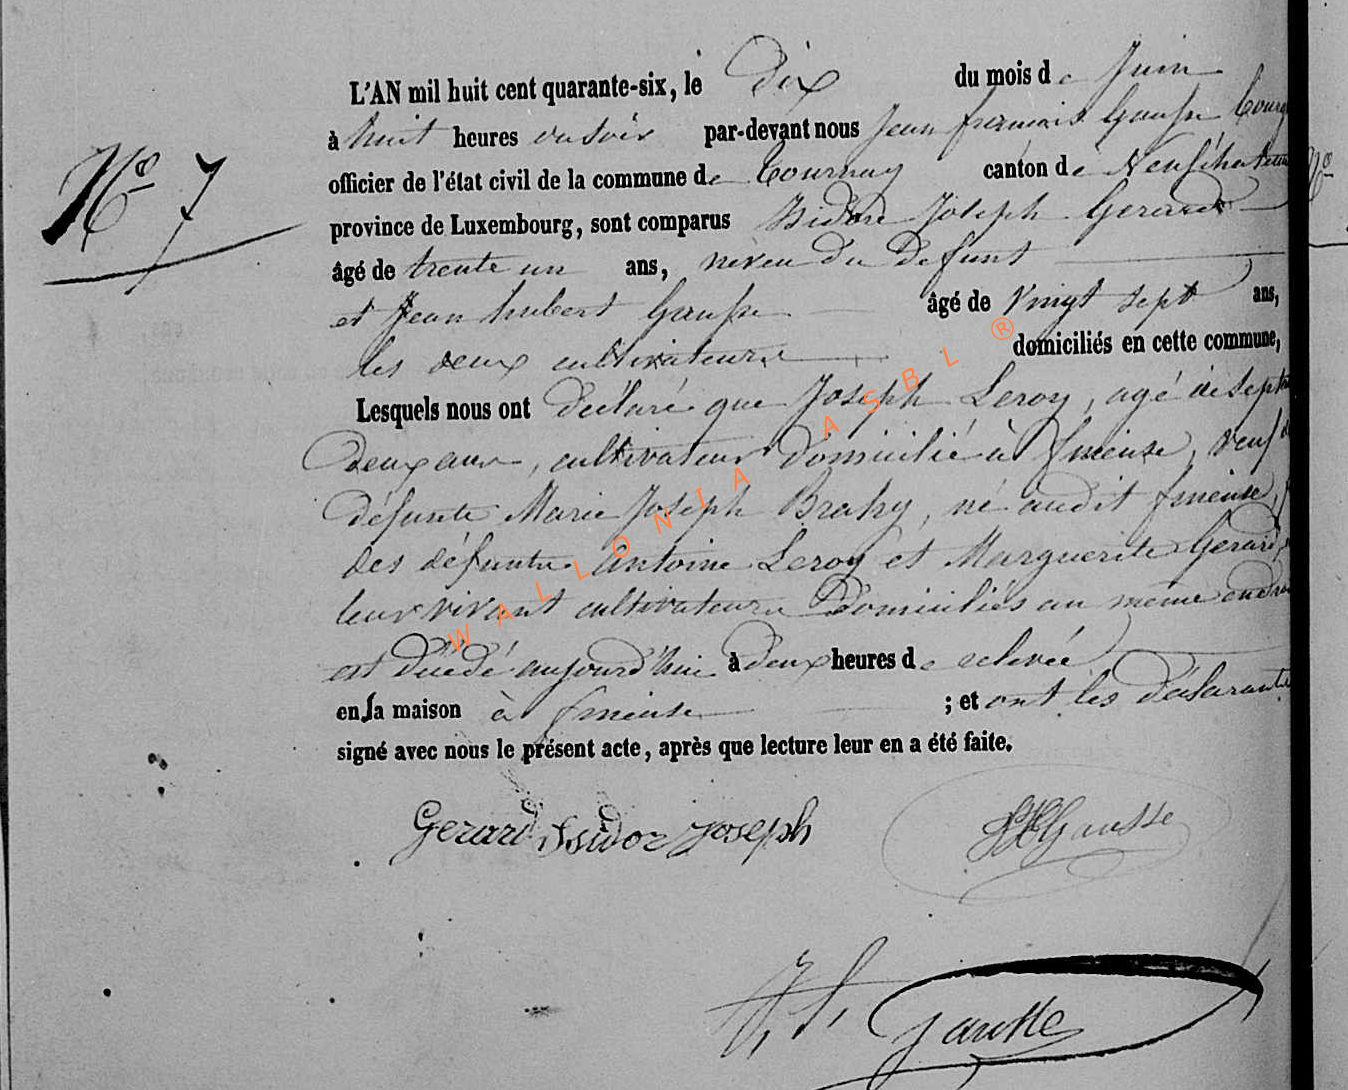 L'AN mil huit cent quarante-six, le dix du mois de Juin
à huit heures du soir par-devant nous Jean françois Gausse
officier de l'état civil de la commune de Tournay canton de Neufchateau
N° 7
province de Luxembourg, sont comparus Isidore Joseph Gerard
âgé de trente un ans, neveu du defunt
et Jean hubert Gausse âgé de Vingt sept ans,
les deux cultivateurs domiciliés en cette commune,
Lesquels nous ont déclaré que Joseph Leroy, agé de
deux ans, cultivateur domicilié à
défunte Marie Joseph Brahy, né audit
des défunts Antoine Leroy et Marguerite Gerard,
leur vivant cultivateurs Domiciliés au même
est Décédé aujourd'hui à deux heures de relevée
en sa maison à ; et ont les déclarants
signé avec nous le présent acte, après que lecture leur en a été faite.
Gerard Isidor Joseph
JHGausse
J. f. Gausse
WALLONIA ASBL ®
N°